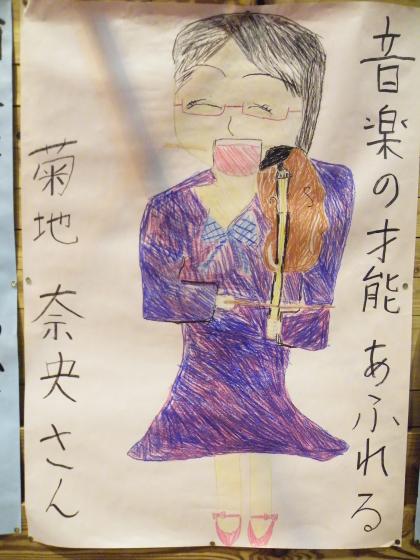 音楽の才能あふれる
菊地奈央さん